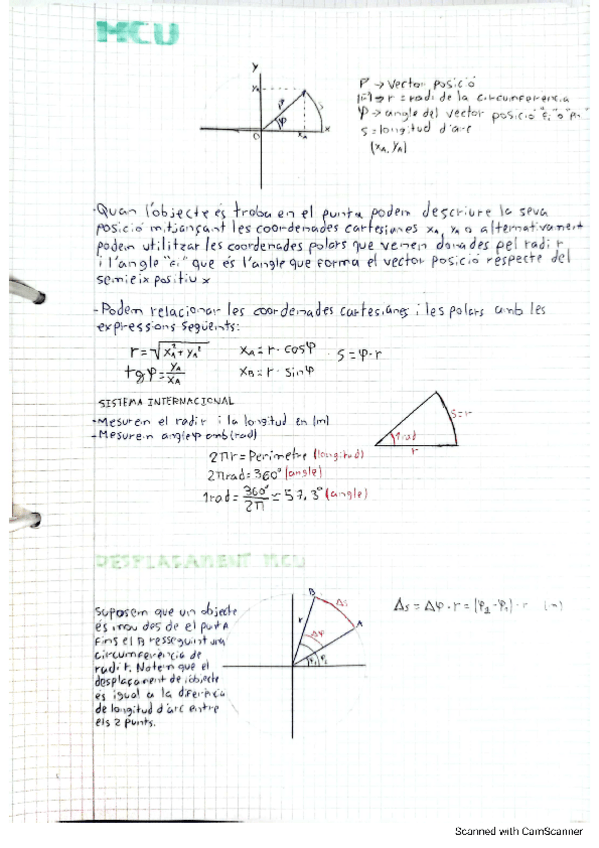 MCU
y
r⃗ → vector posició
|r⃗| → r = radi de la circumferència
φ → angle del vector posició
s = longitud d'arc
(xA, yA)
yA
r⃗
s
φ
O
xA
x
·Quan l'objecte és troba en el punt A podem descriure la seva
posició mitjançant les coordenades cartesianes xA, yA o alternativament
podem utilitzar les coordenades polars que venen donades pel radi r
i l'angle "fi" que és l'angle que forma el vector posició respecte del
semieix positiu x
-Podem relacionar les coordenades cartesianes i les polars amb les
expressions següents:
r = √xA² + yA²   xA = r · cosφ   s = φ · r
tgφ = yA/xA   xB = r · sinφ
SISTEMA INTERNACIONAL
-Mesurem el radi r i la longitud en (m)
-Mesurem angle φ amb (rad)
s=r
1rad
r
2πr = Perímetre (longitud)
2πrad = 360° (angle)
1rad = 360°/2π ≃ 57,3° (angle)
DESPLAÇAMENT MCU
Suposem que un objecte
és mou des de el punt A
fins el B resseguint una
circumferència de
radi r. Notem que el
desplaçament de l'objecte
és igual a la diferència
de longitud d'arc entre
els 2 punts.
B
Δs
A
r
Δφ
Δs = Δφ · r = |φ2 - φ1| · r (m)
Scanned with CamScanner